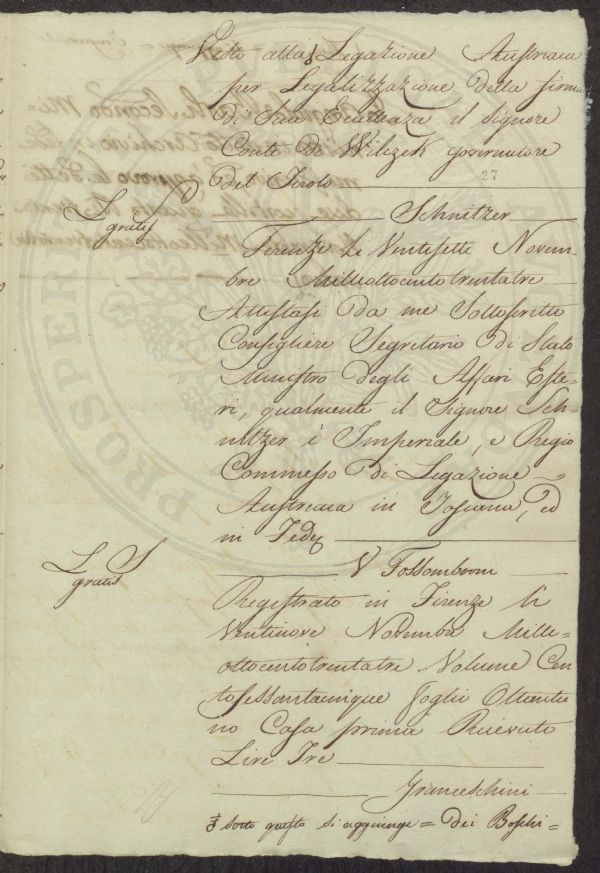 Visto alla Legazione Austriaca
per Legalizzazione della firma
di Sua Eccellenza il Signore
Conte di Wilczek Governatore
del Tirolo
37
L S
gratis
Schnitzer
Firenze Li Ventisette Novem-
bre Milleottocentotrentatre
Attestasi da me Sottoscritto
Consigliere Segretario di Stato
Ministro degli Affari Este-
ri, qualmente il Signore Sch-
nitzer è Imperiale, e Regio
Commesso di Legazione
Austriaca in Toscana, ed
in Fede
L S
gratis
V Fossombroni
Registrato in Firenze li
Ventinove Novembre Mille-
ottocentotrentatre Volume Cen
tosessantacinque foglio Ottantu
no Casa prima Ricevuto
Lire Tre
Franceschini
sotto questo si aggiunge = Dei Boschi =
PROSPERI